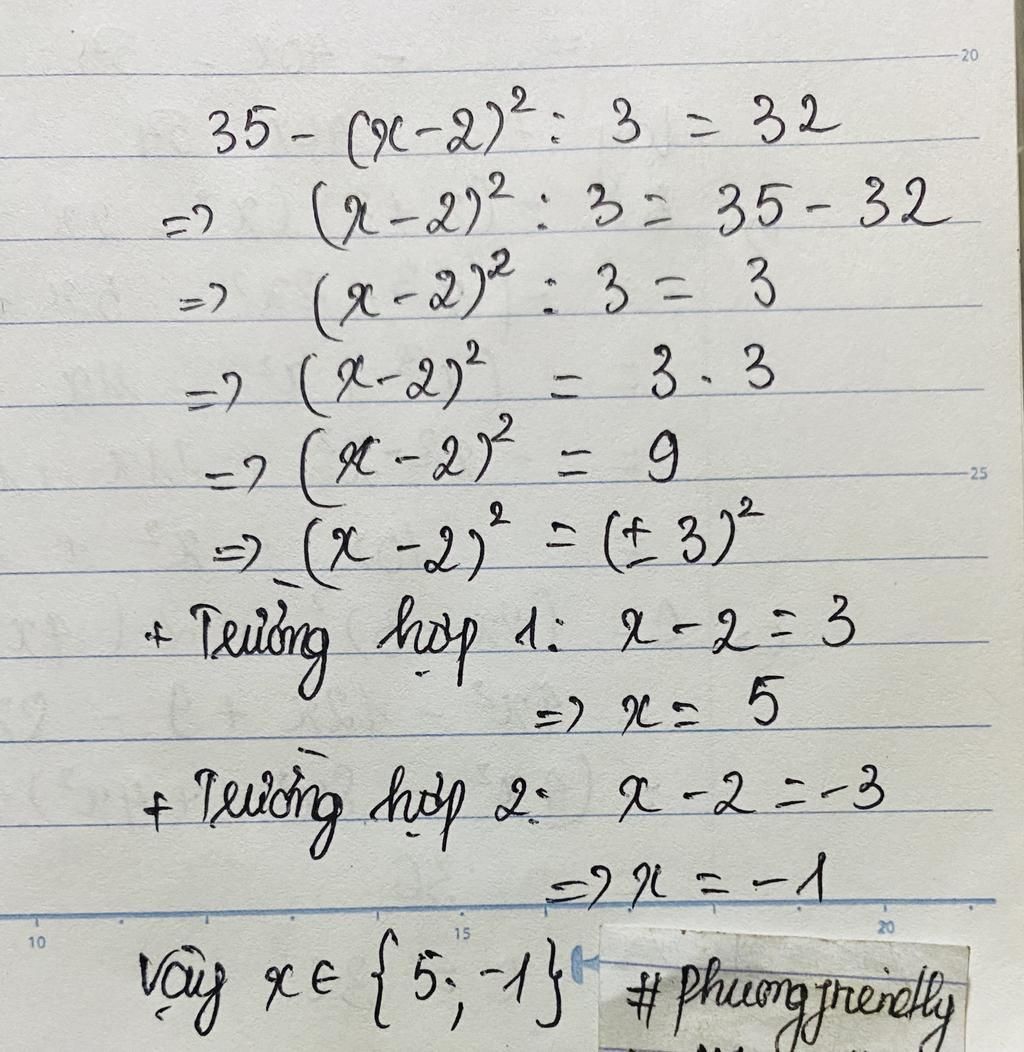 20
35 - (x - 2)² : 3 = 32
=> (x - 2)² : 3 = 35 - 32
=> (x - 2)² : 3 = 3
=> (x - 2)² = 3 . 3
=> (x - 2)² = 9
25
=> (x - 2)² = (± 3)²
+ Trường hợp 1: x - 2 = 3
=> x = 5
+ Trường hợp 2: x - 2 = -3
=> x = -1
10 15 20
Vậy x ∈ {5; -1}
# phuongfriendly